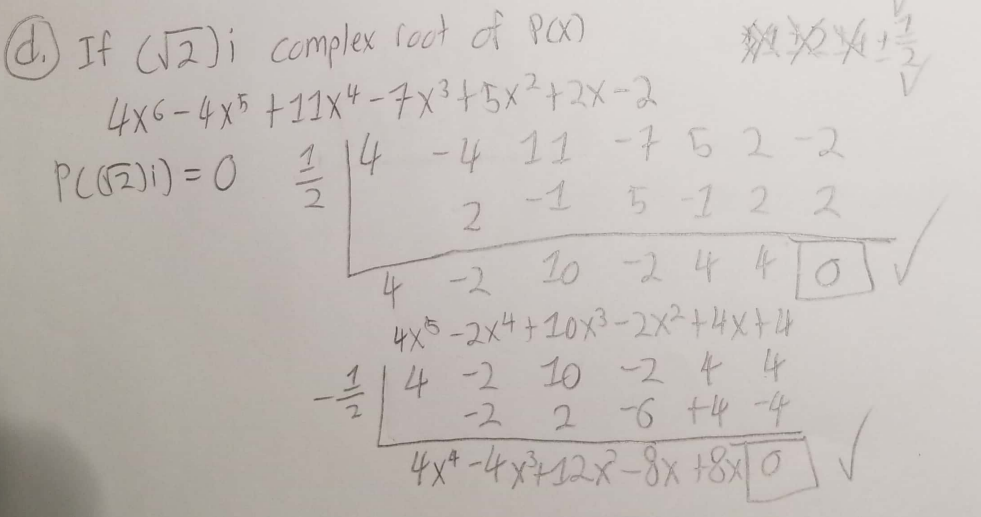 d. If (√2)i complex root of P(x)
± 1/2 ✓
4x⁶ - 4x⁵ + 11x⁴ - 7x³ + 5x² + 2x - 2
P((√2)i) = 0
1/2 | 4 -4 11 -7 5 2 -2
2 -1 5 -1 2 2
4 -2 10 -2 4 4 0 ✓
4x⁵ - 2x⁴ + 10x³ - 2x² + 4x + 4
-1/2 | 4 -2 10 -2 4 4
-2 2 -6 +4 -4
4x⁴ - 4x³ + 12x² - 8x + 8x 0 ✓